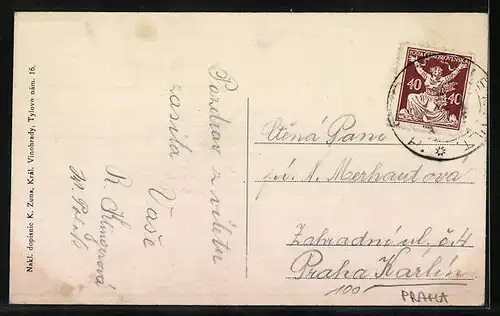 Nakl. dopisnic K. Zuna, Král. Vinohrady, Tylovo nám. 16.
Pozdrav z výletu
zasílá Vaše
R.
M.
POŠTA ČESKOSLOVENSKÁ
40 40
Ctěná Paní
pí. N. Merhautova
Zahradní ul. č. 4
Praha Karlín
100
PRAHA